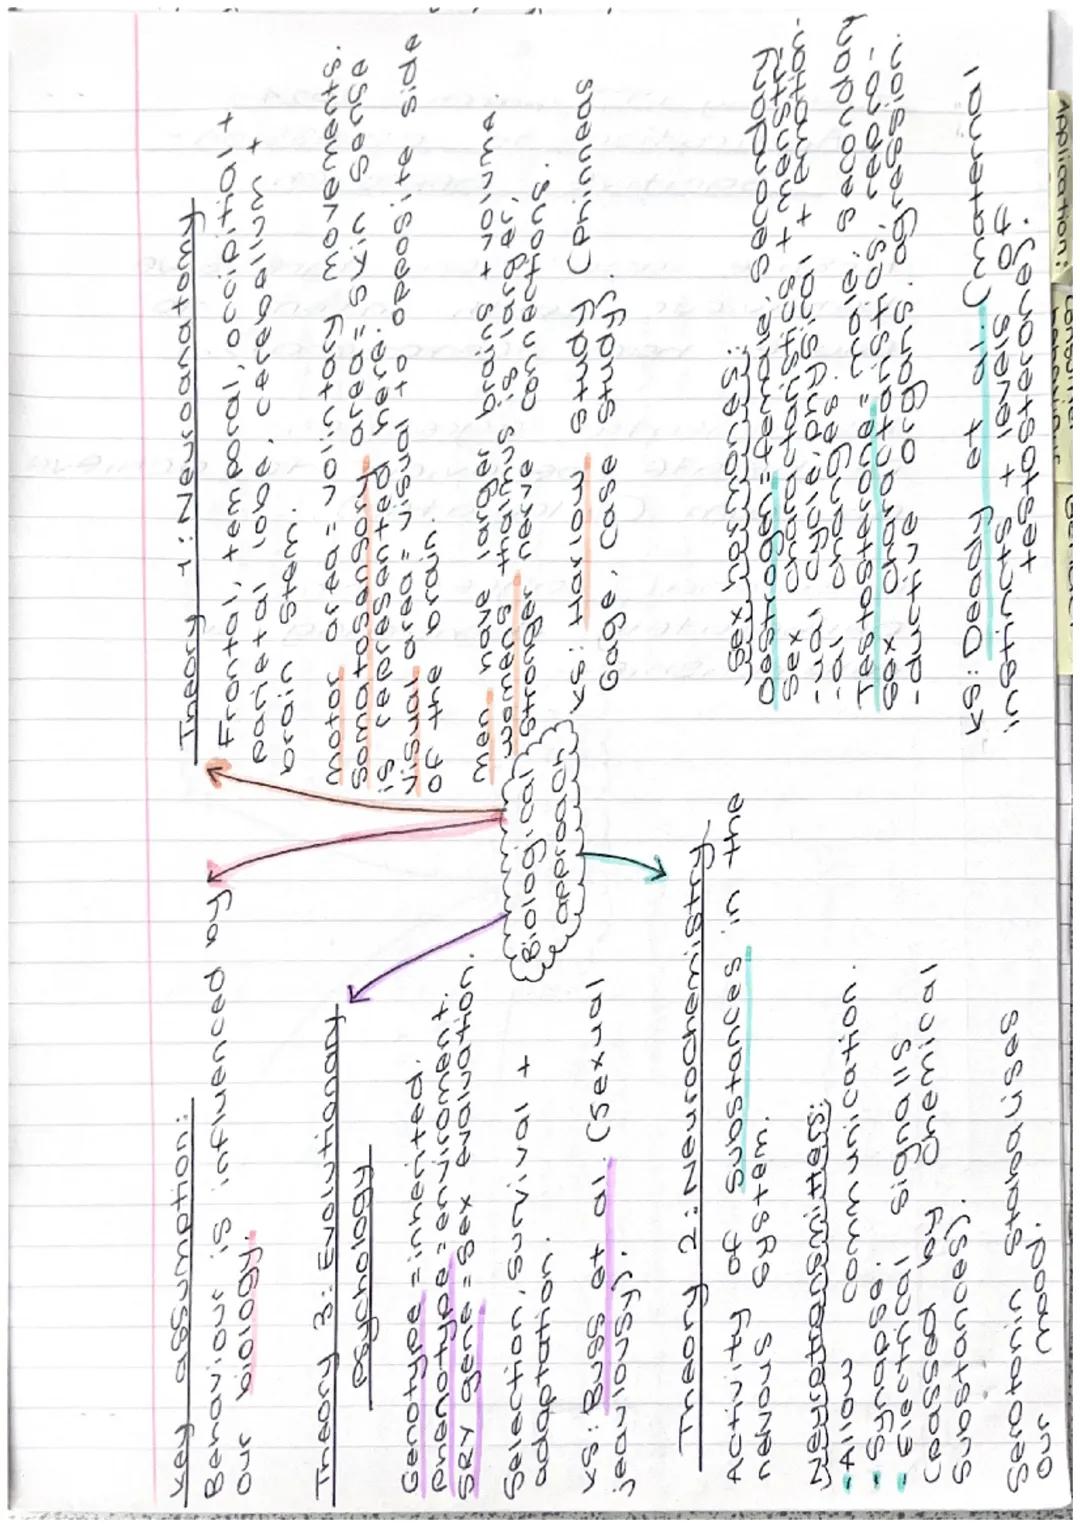 Key assumption:
Behaviour is influenced by
our biology.
Theory 3: Evolutionary
psychology
Genotype = inherited.
phenotype = enviroment.
SRY gene = sex evaluation.
Selection, survival +
adaptation.
KS: Buss et al. (sexual
jeaulousy).
Theory 1: Neuroanatomy
Frontal, temporal, occipitial +
parietal lobe, cerebellum +
brain stem.
motor area = voluntary movements.
Somatosensory area = skin sense
is represented here.
Visual area = visual to opposite side
of the brain.
men have larger brains + volume.
womens thalmus is larger,
stronger nerve connections.
KS: Harlow study (Phinneas
Gage, case study).
Biological
approach
Theory 2: Neurochemistry
Activity of substances in the
nervous system.
Neurotransmitters:
- Allow communication.
- Synapse.
- Electrical signalls
(passed by chemical
substances).
Serotonin stabalises
our mood.
Sex hormones:
Oestrogen = female, secondary
sex charactaristics + menstr-
-ual cycle, physical + emotion-
-al changes.
Testosterone = male, secondary
sex charactaristics, repro-
-ductive organs. agression.
KS: Deady et al. (maternal
instincts + level of
testosterone).
Application:
Consumer
behaviour